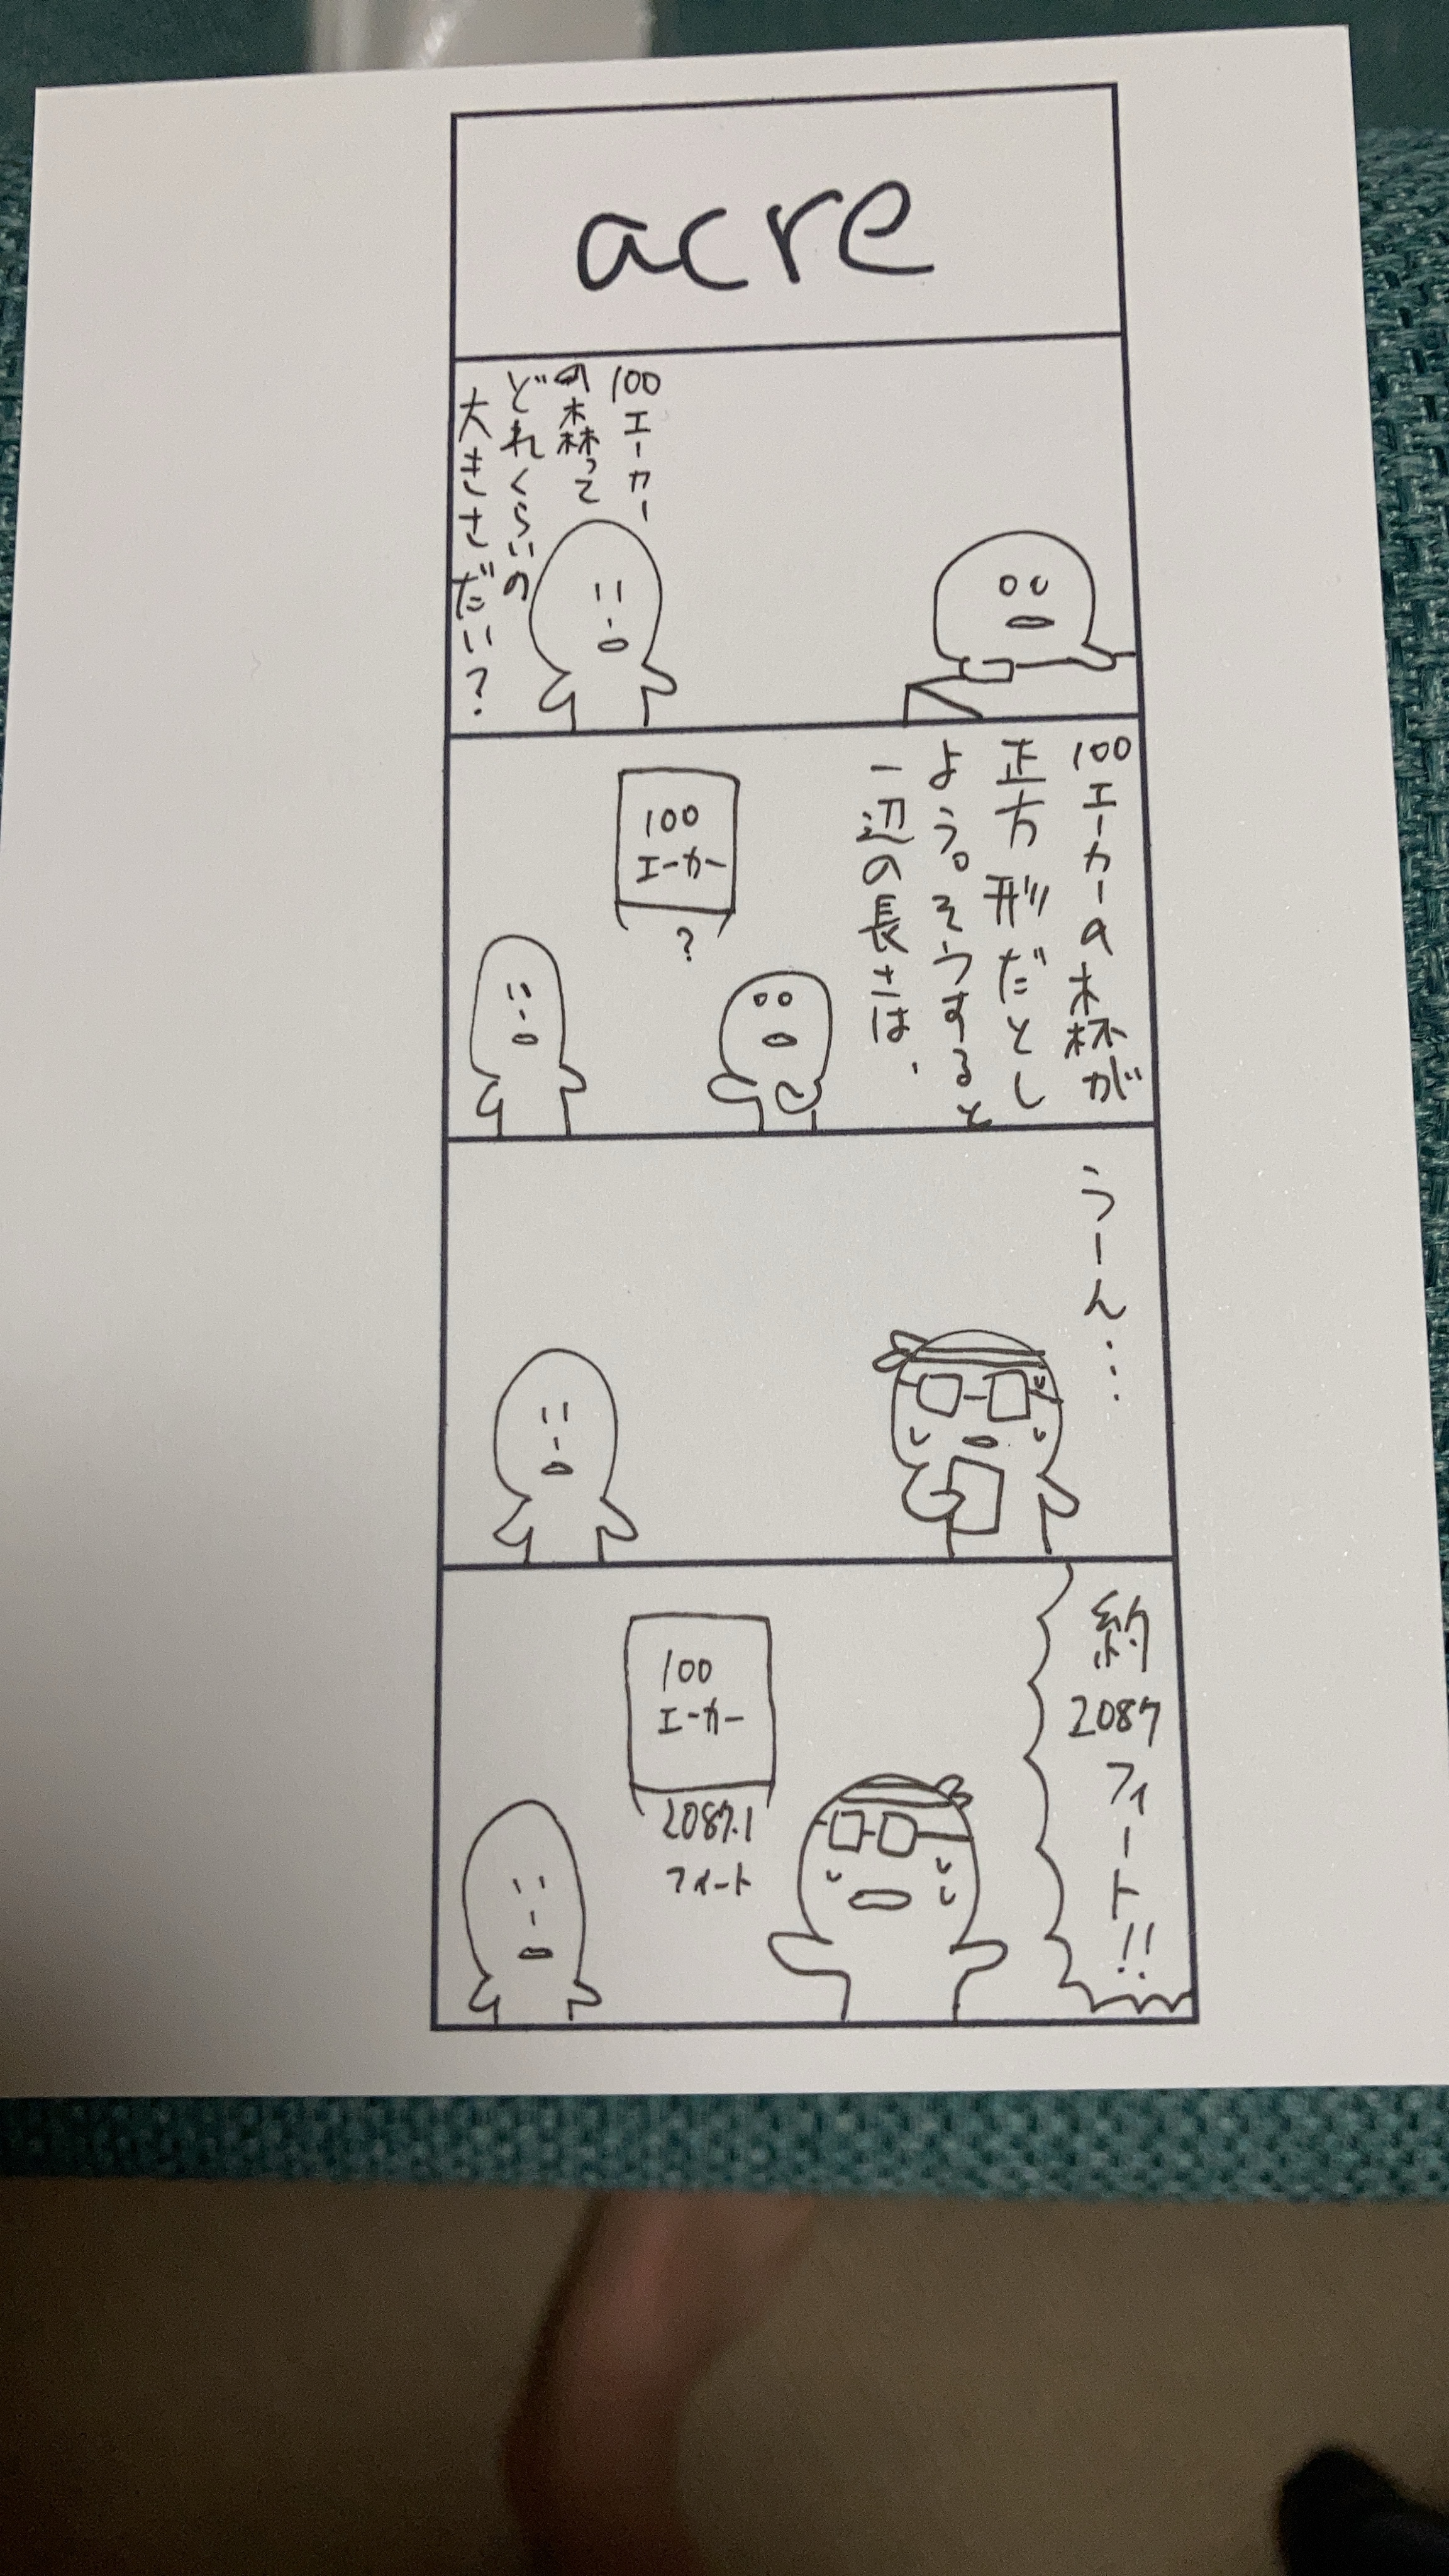 acre
100エーカー
の森って
どれくらいの
大きさだい?
100エーカーの森が
正方形だとし
よう。そうすると
一辺の長さは、
100
エーカー
?
うーん……
約2087フィート!!
100
エーカー
2087.1
フィート